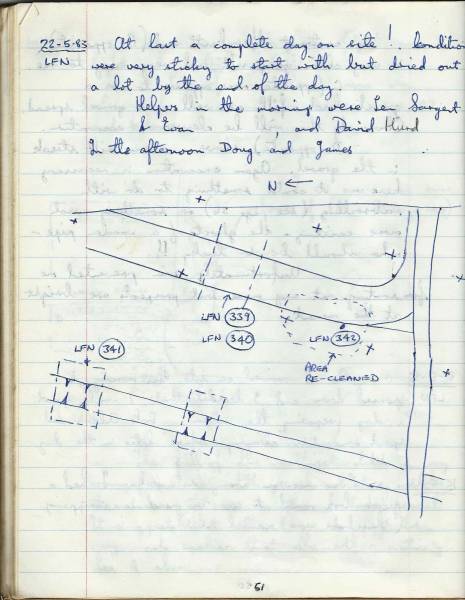 22-5-83 At last a complete day on site! Conditions
LFN were very sticky to start with but dried out
a lot by the end of the day.
Helpers in the morning were Len Sargent
& Evan , and David Hurd
In the afternoon Doug and James .
N ←
LFN 339
LFN 340
LFN 342
AREA
RE-CLEANED
LFN 341
61